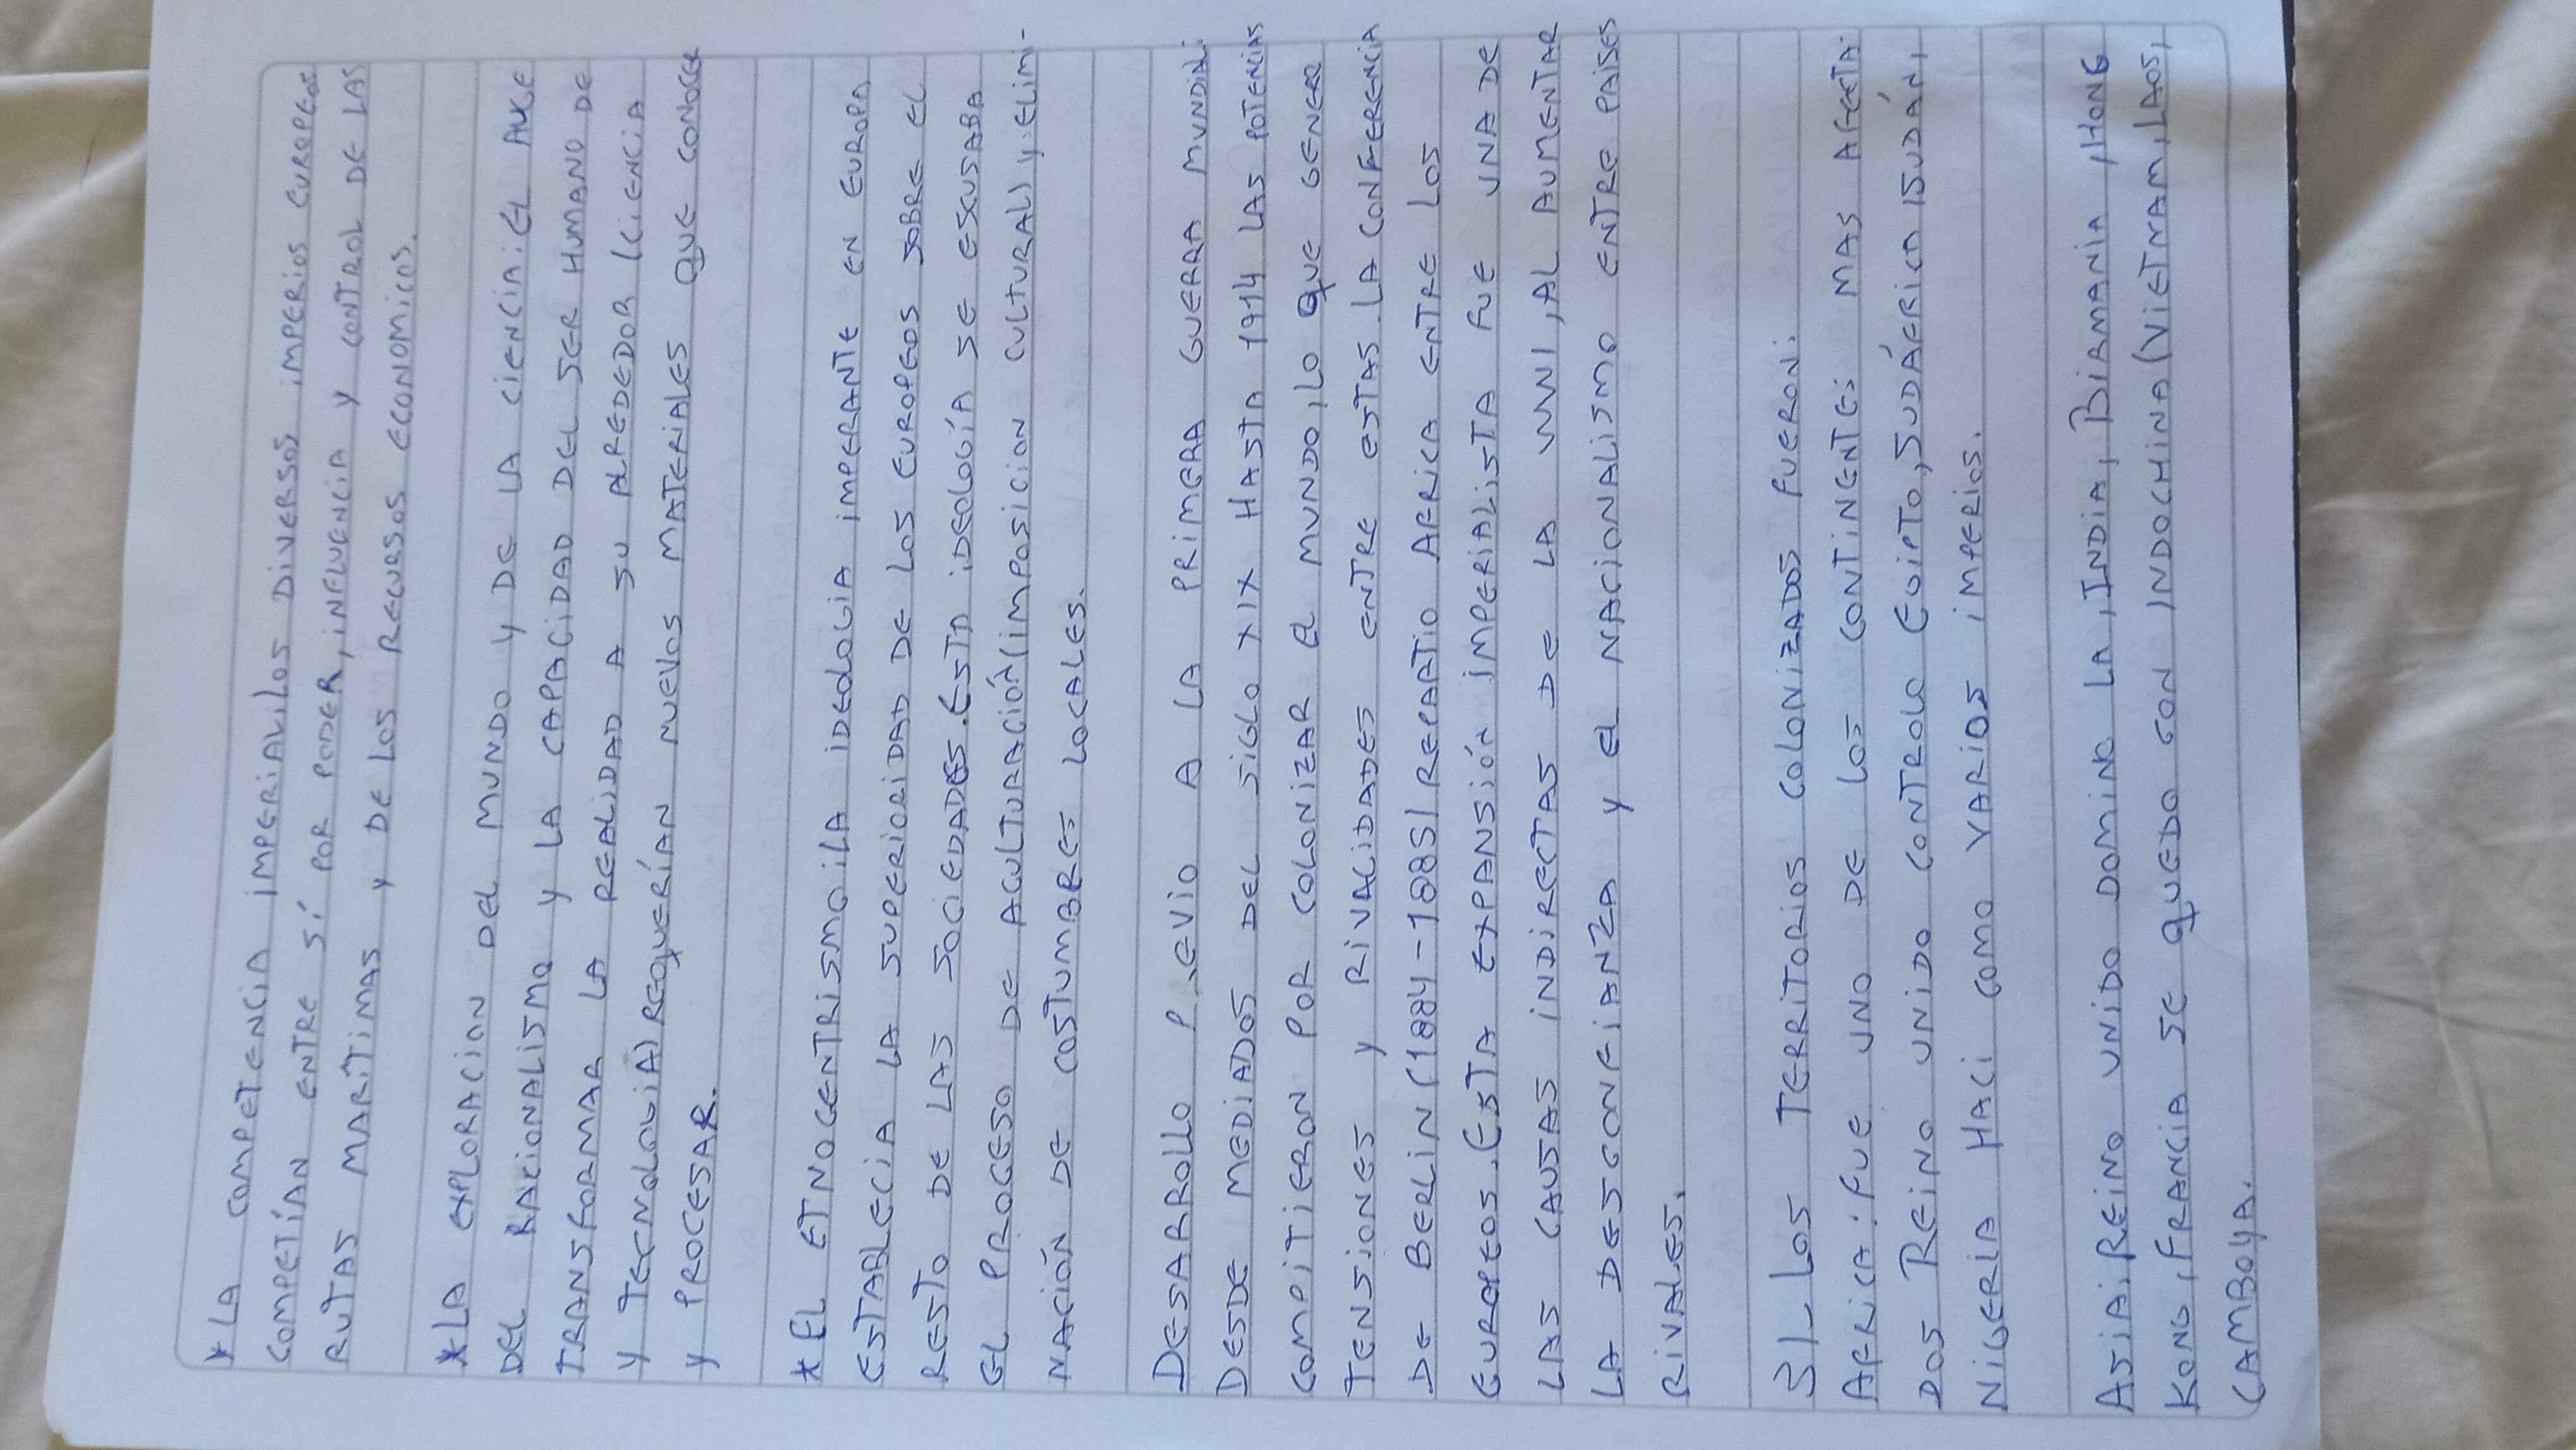 * LA COMPETENCIA IMPERIAL: LOS DIVERSOS IMPERIOS EUROPEOS
COMPETÍAN ENTRE SÍ POR PODER, INFLUENCIA Y CONTROL DE LAS
RUTAS MARÍTIMAS Y DE LOS RECURSOS ECONOMICOS.
* LA EXPLORACION DEL MUNDO Y DE LA CIENCIA: EL AUGE
DEL RACIONALISMO Y LA CAPACIDAD DEL SER HUMANO DE
TRANSFORMAR LA REALIDAD A SU ALREDEDOR (CIENCIA
Y TECNOLOGIA) REQUERÍAN NUEVOS MATERIALES QUE CONOCER
Y PROCESAR.
* EL ETNOCENTRISMO: LA IDEOLOGIA IMPERANTE EN EUROPA
ESTABLECIA LA SUPERIORIDAD DE LOS EUROPEOS SOBRE EL
RESTO DE LAS SOCIEDADES. ESTA IDEOLOGÍA SE ESCUSABA
EL PROCESO DE ACULTURACIÓN (IMPOSICION CULTURAL) Y ELIMI-
NACIÓN DE COSTUMBRES LOCALES.
DESARROLLO PREVIO A LA PRIMERA GUERRA MUNDIAL:
DESDE MEDIADOS DEL SIGLO XIX HASTA 1914 LAS POTENCIAS
COMPITIERON POR COLONIZAR EL MUNDO, LO QUE GENERO
TENSIONES Y RIVALIDADES ENTRE ESTAS. LA CONFERENCIA
DE BERLIN (1884-1885) REPARTIO AFRICA ENTRE LOS
EUROPEOS. ESTA EXPANSIÓN IMPERIALISTA FUE UNA DE
LAS CAUSAS INDIRECTAS DE LA WWI, AL AUMENTAR
LA DESCONFIANZA Y EL NACIONALISMO ENTRE PAISES
RIVALES.
3)_ LOS TERRITORIOS COLONIZADOS FUERON:
AFRICA: FUE UNO DE LOS CONTINENTES MAS AFECTA-
DOS REINO UNIDO CONTROLO EGIPTO, SUDÁFRICA, SUDÁN,
NIGERIA HACI COMO VARIOS IMPERIOS.
ASIA: REINO UNIDO DOMINO LA, INDIA, BIRMANIA, HONG
KONG, FRANCIA SE QUEDO CON INDOCHINA (VIETMAM, LAOS,
CAMBOYA.